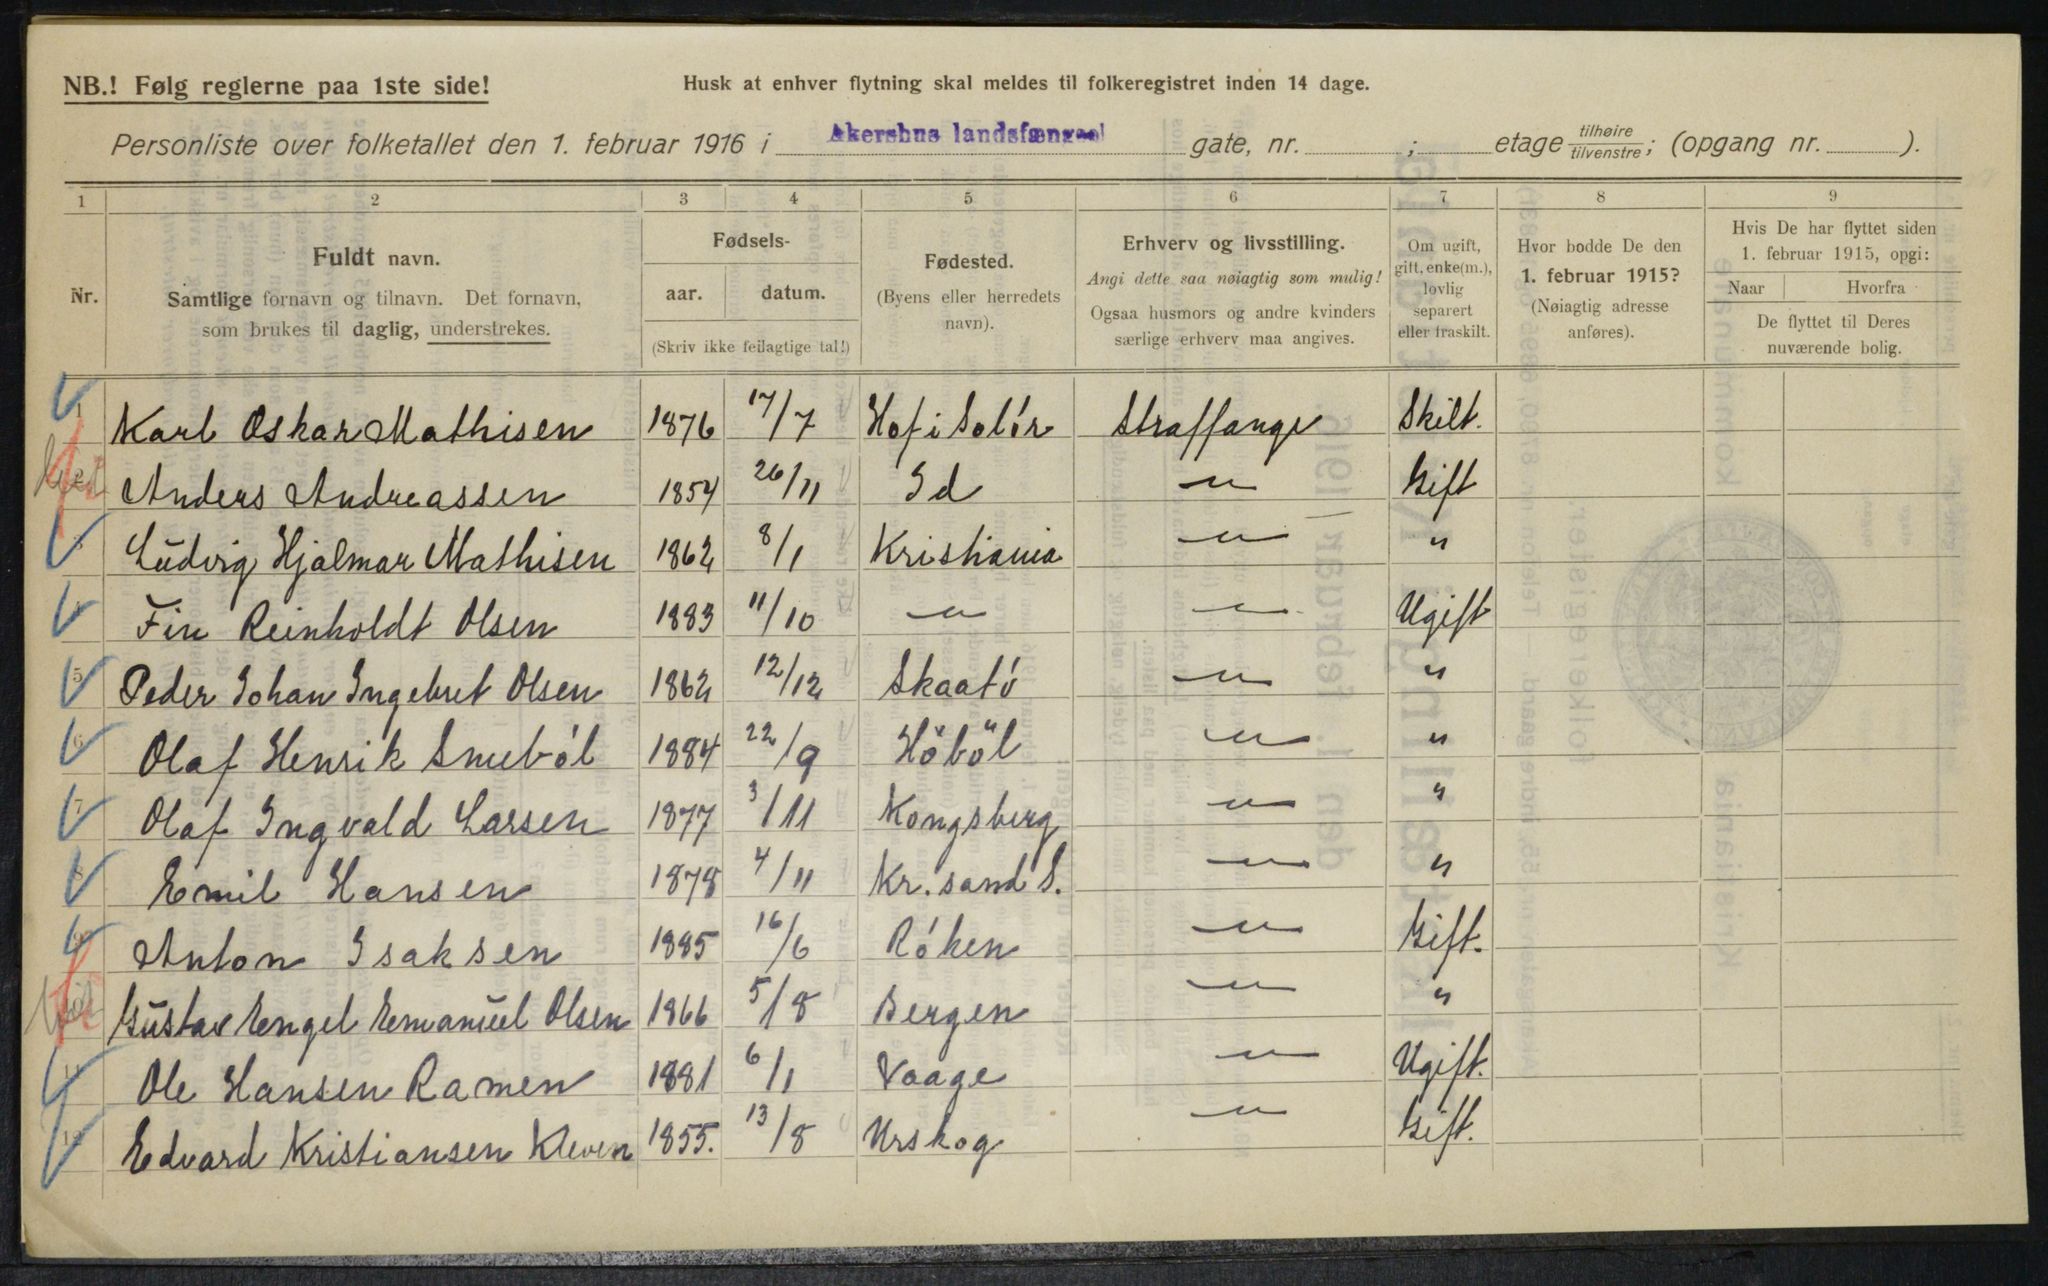 NB.! Følg reglerne paa 1ste side!
Husk at enhver flytning skal meldes til folkeregistret inden 14 dage.
Personliste over folketallet den 1. februar 1916 i Akershus landsfængsel gate, nr. ; etage tilhøire tilvenstre; (opgang nr. ).
1 2 3 4 5 6 7 8 9
Nr.
Fuldt navn.
Samtlige fornavn og tilnavn. Det fornavn,
som brukes til daglig, understrekes.
Fødsels-
aar. datum.
(Skriv ikke feilagtige tal!)
Fødested.
(Byens eller herredets
navn).
Erhverv og livsstilling.
Angi dette saa nøiagtig som mulig!
Ogsaa husmors og andre kvinders
særlige erhverv maa angives.
Om ugift,
gift, enke(m.),
lovlig
separert
eller fraskilt.
Hvor bodde De den
1. februar 1915?
(Nøiagtig adresse
anføres).
Hvis De har flyttet siden
1. februar 1915, opgi:
Naar Hvorfra
De flyttet til Deres
nuværende bolig.
1 Karl Oskar Mathisen 1876 17/7 Hof i Solör Straffange Skilt.
2 Anders Andreassen 1854 26/11 Id —"— Gift
3 Ludvig Hjalmar Mathisen 1862 8/1 Kristiania —"— "
4 Fin Reinholdt Olsen 1883 11/10 —"— —"— Ugift
5 Peder Johan Ingebret Olsen 1862 12/12 Skaató —"— "
6 Olaf Henrik Smeból 1884 22/9 Höböl —"— "
7 Olaf Ingvald Larsen 1877 3/11 Kongsberg —"— "
8 Emil Hansen 1878 4/11 Kr. sand S. —"— "
9 Anton Isaksen 1885 16/6 Róken —"— Gift.
10 Gustav Engel Emanuel Olsen 1866 5/8 Bergen —"— "
11 Ole Hansen Ramen 1881 6/1 Vaage —"— Ugift.
12 Edvard Kristiansen Kleven 1855. 13/8 Urskog —"— Gift.